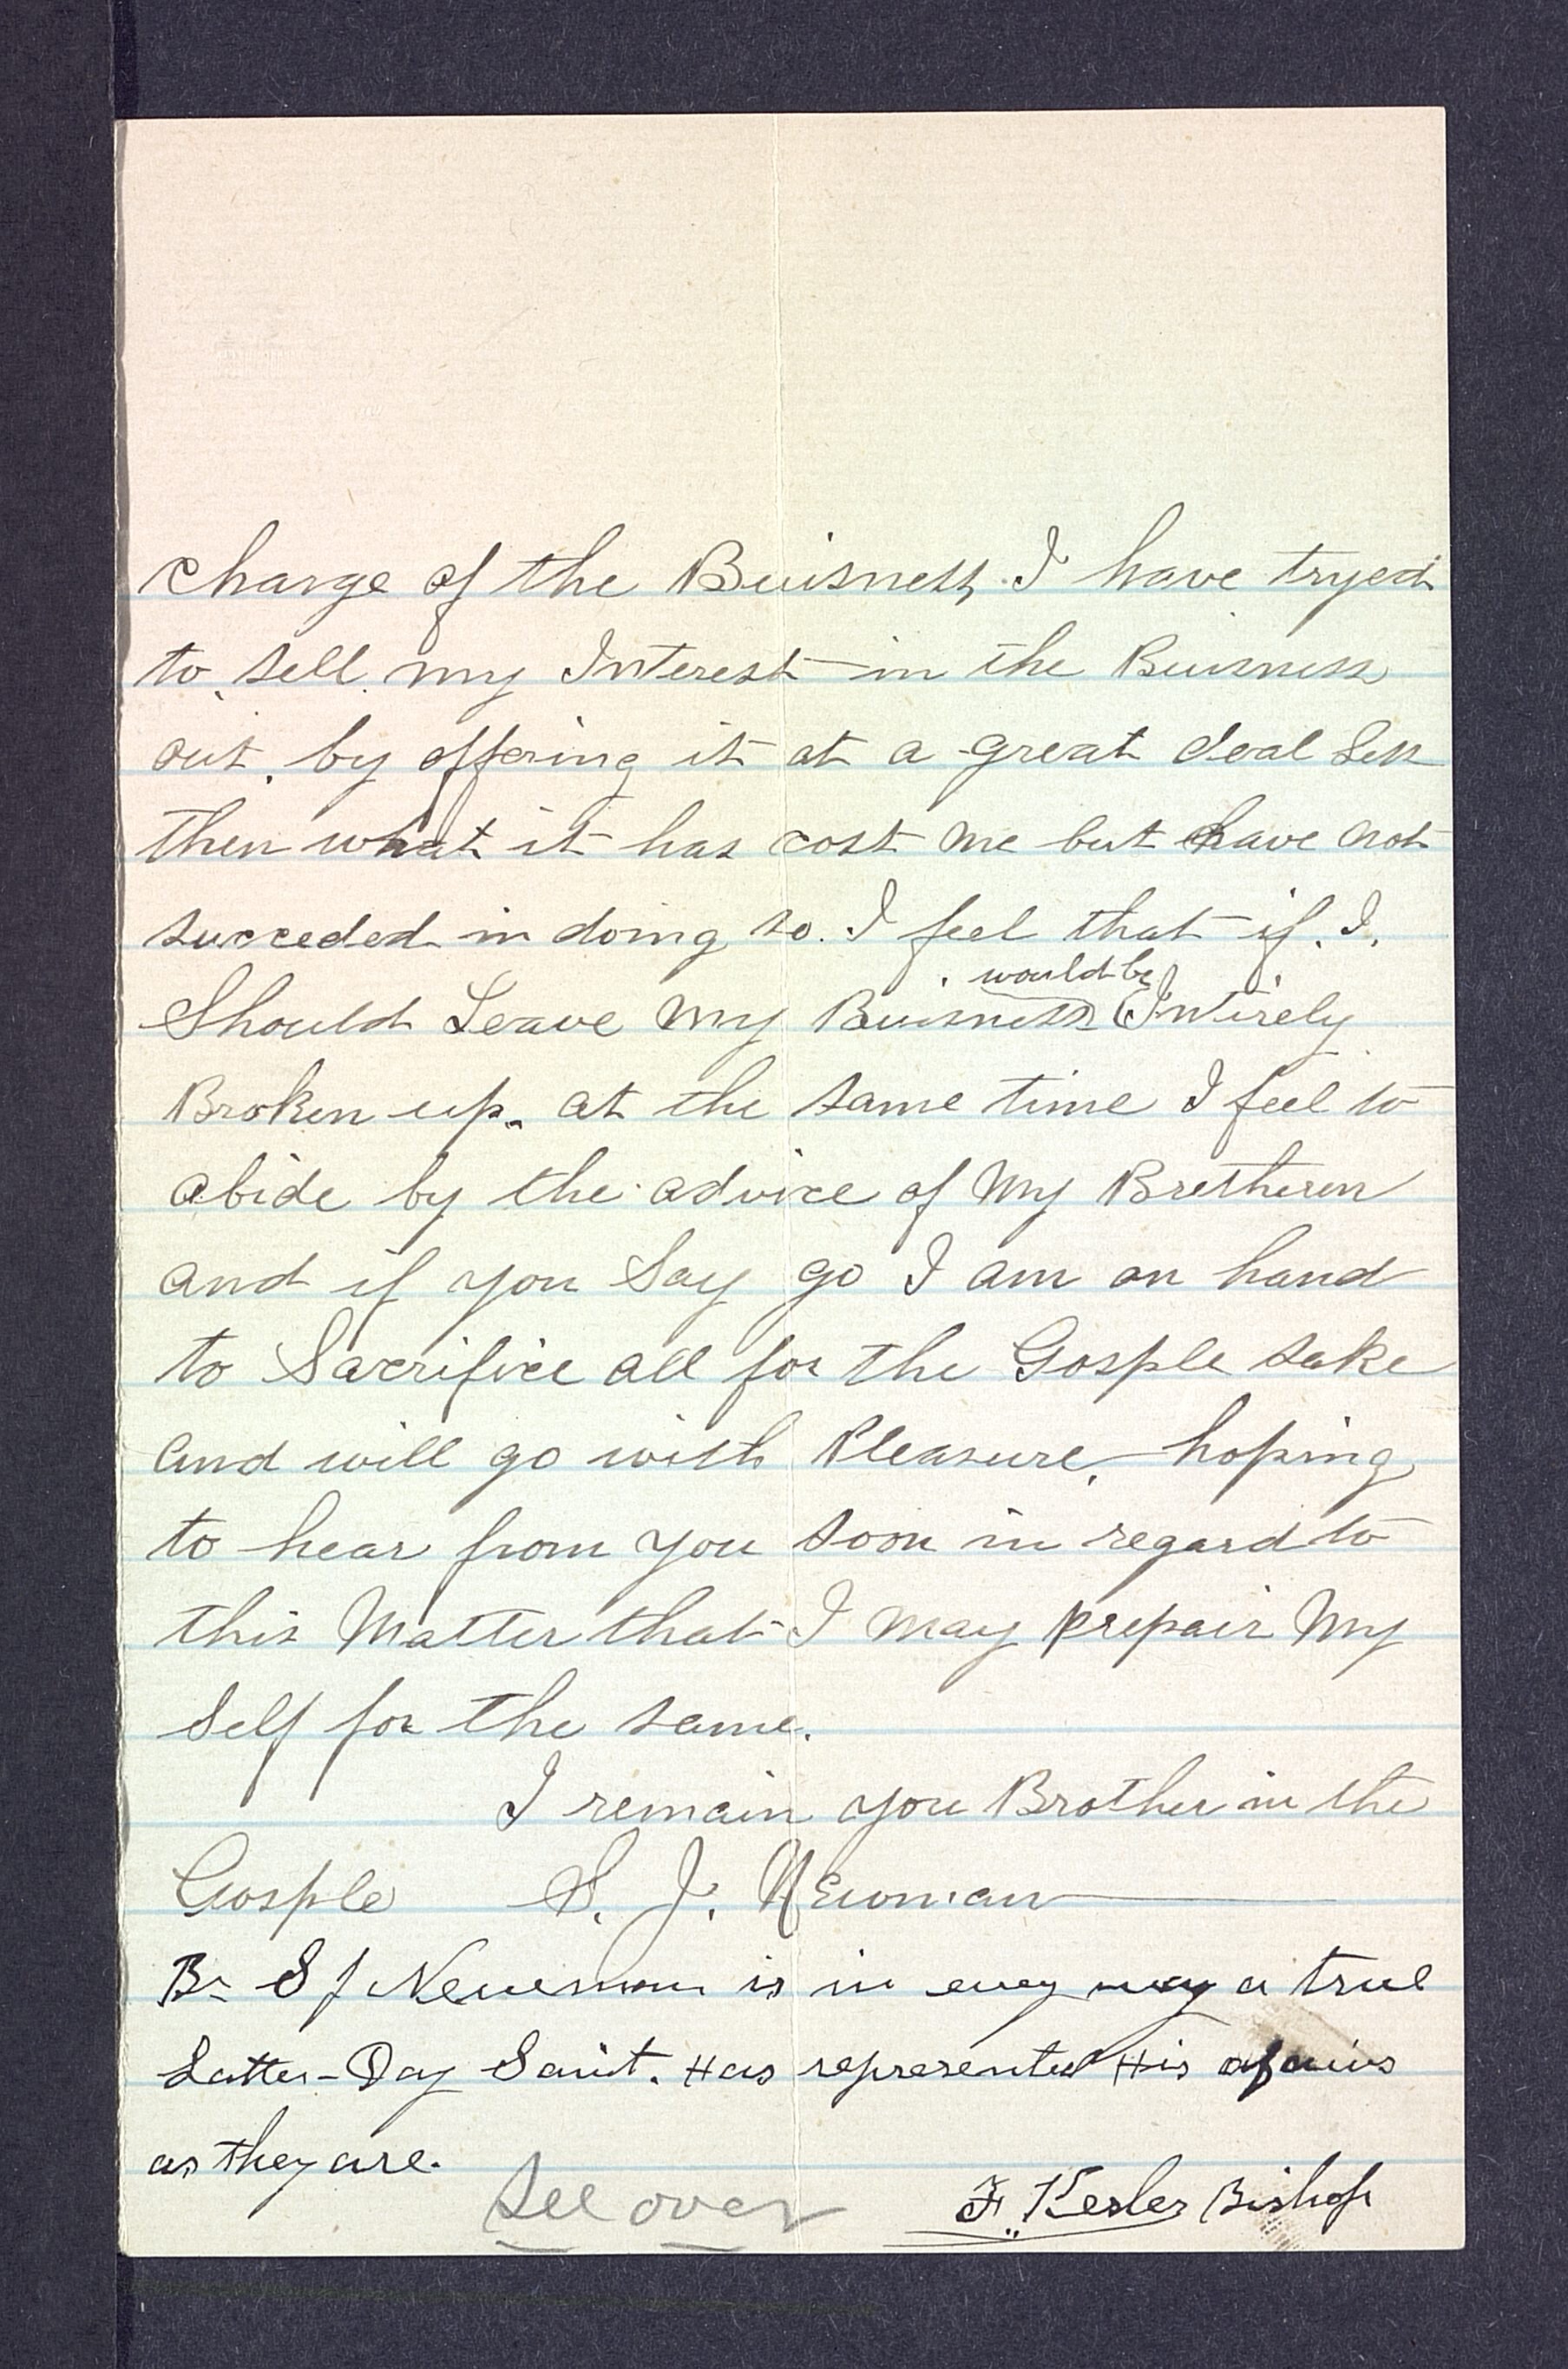 charge of the Buisness, I have tryed
to sell my Interest in the Buisness
out. by offering it at a great deal Less
then what it has cost me but have not
succeded in doing so. I feel that if. I.
Should Leave my Buisness would be Intirely
Broken up. at the same time I feel to
abide by the advice of My Bretheren
and if you Say go I am on hand
to Sacrifice all for the Gosple sake
and will go with Pleasure. hoping
to hear from you soon in regard to
this Matter that I may prepair My
Self for the same.
I remain you Brother in the
Gosple S. J. Newman
Br S J Newman is in evry way a true
Latter-Day Saint. Has represented His afairs
as they are.
F. Kesler Bishop
See over